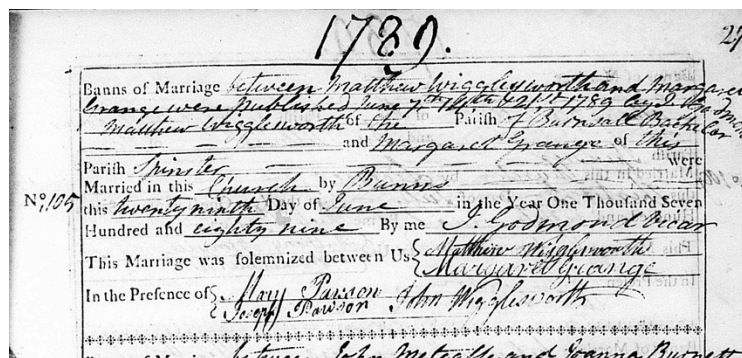 1789.
27
Banns of Marriage between Matthew Wigglesworth and Margaret
Grange were published June 7th 14th & 21st 1789 by J. Godmond
Matthew Wigglesworth of the Parish of Burnsall Batchelor
and Margaret Grange of this
Parish Spinster Were
No, 105
Married in this Church by Banns
this twenty ninth Day of June in the Year One Thousand Seven
Hundred and eighty nine By me J. Godmond Vicar
This Marriage was solemnized between Us { Matthew Wigglesworth
Margaret Grange
In the Presence of { Mary Pawson John Wigglesworth
Joseph Pawson
between John Metcalfe and Joanna Burnett